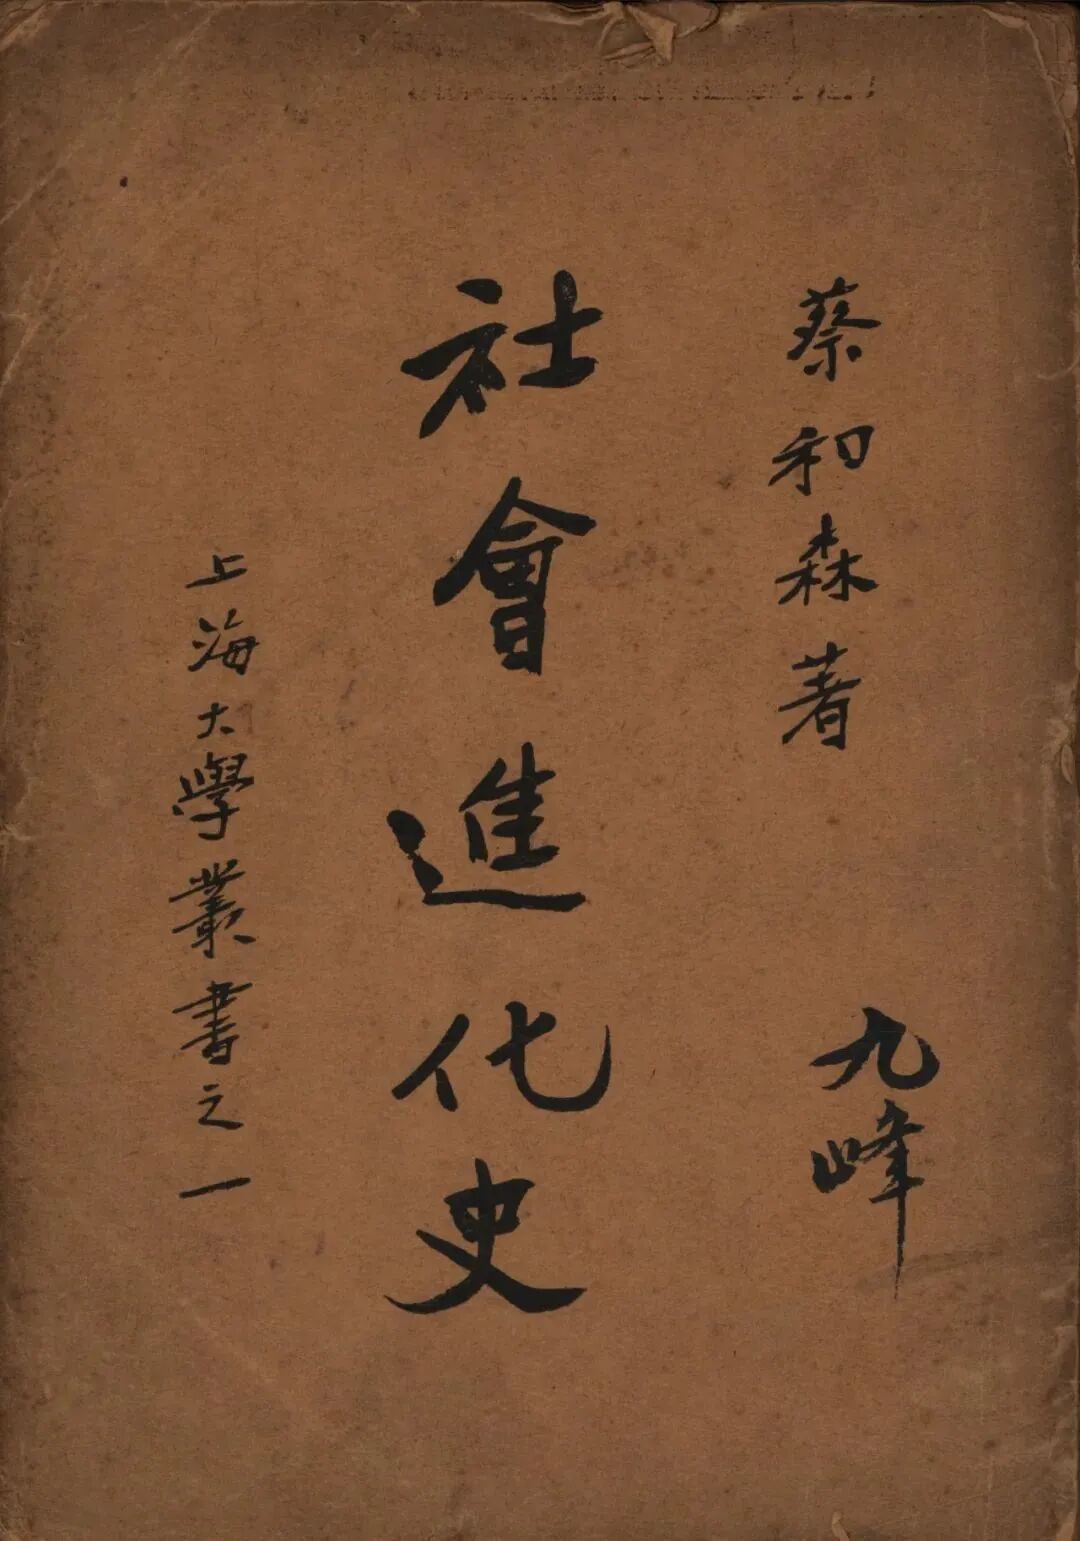 蔡和森著
九峰
社會進化史
上海大學叢書之一